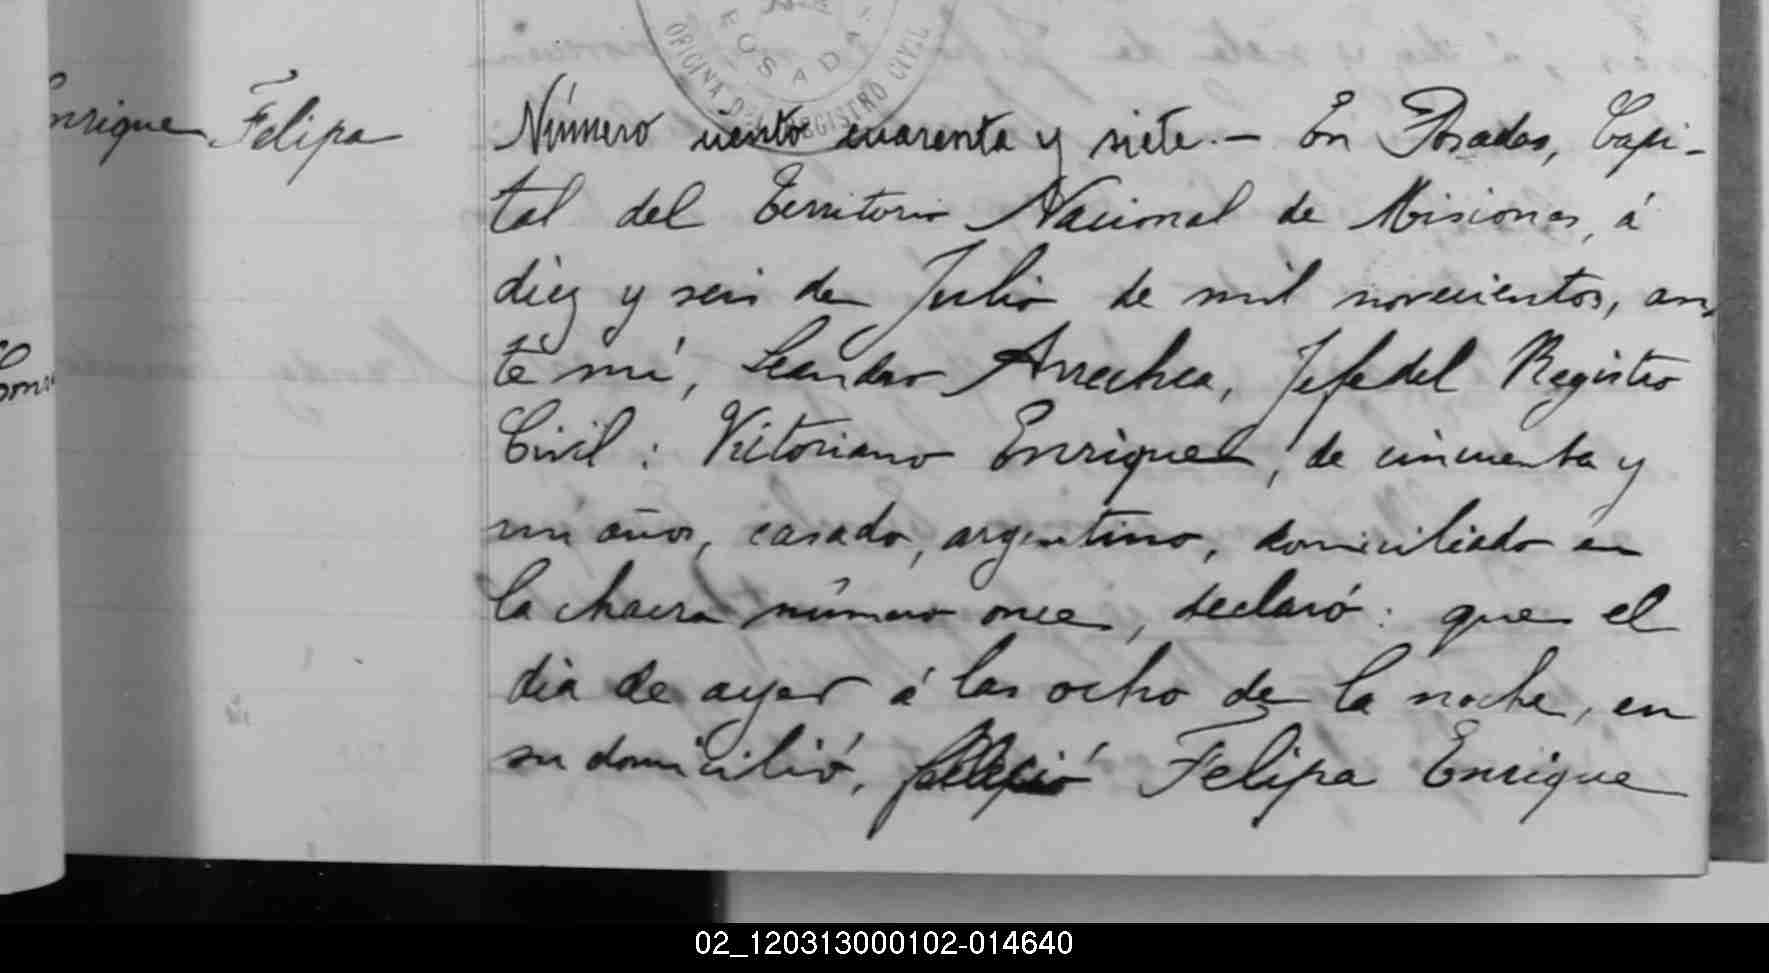 POSADAS
OFICINA DEL REGISTRO CIVIL
Enrique Felipa
Número ciento cuarenta y siete.— En Posadas, Capi-
tal del Territorio Nacional de Misiones, á
diez y seis de Julio de mil novecientos, an
te mí, Leandro Arrechea, Jefe del Registro
Civil: Victoriano Enrique, de cincuenta y
un años, casado, argentino, domiciliado en
la chacra número once, declaró: que el
dia de ayer á las ocho de la noche, en
su domicilió, falleció Felipa Enrique
02_120313000102-014640